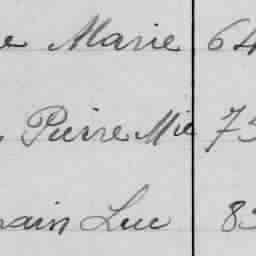 e Marie 64
Pierre Mie 75
ain Luc 83